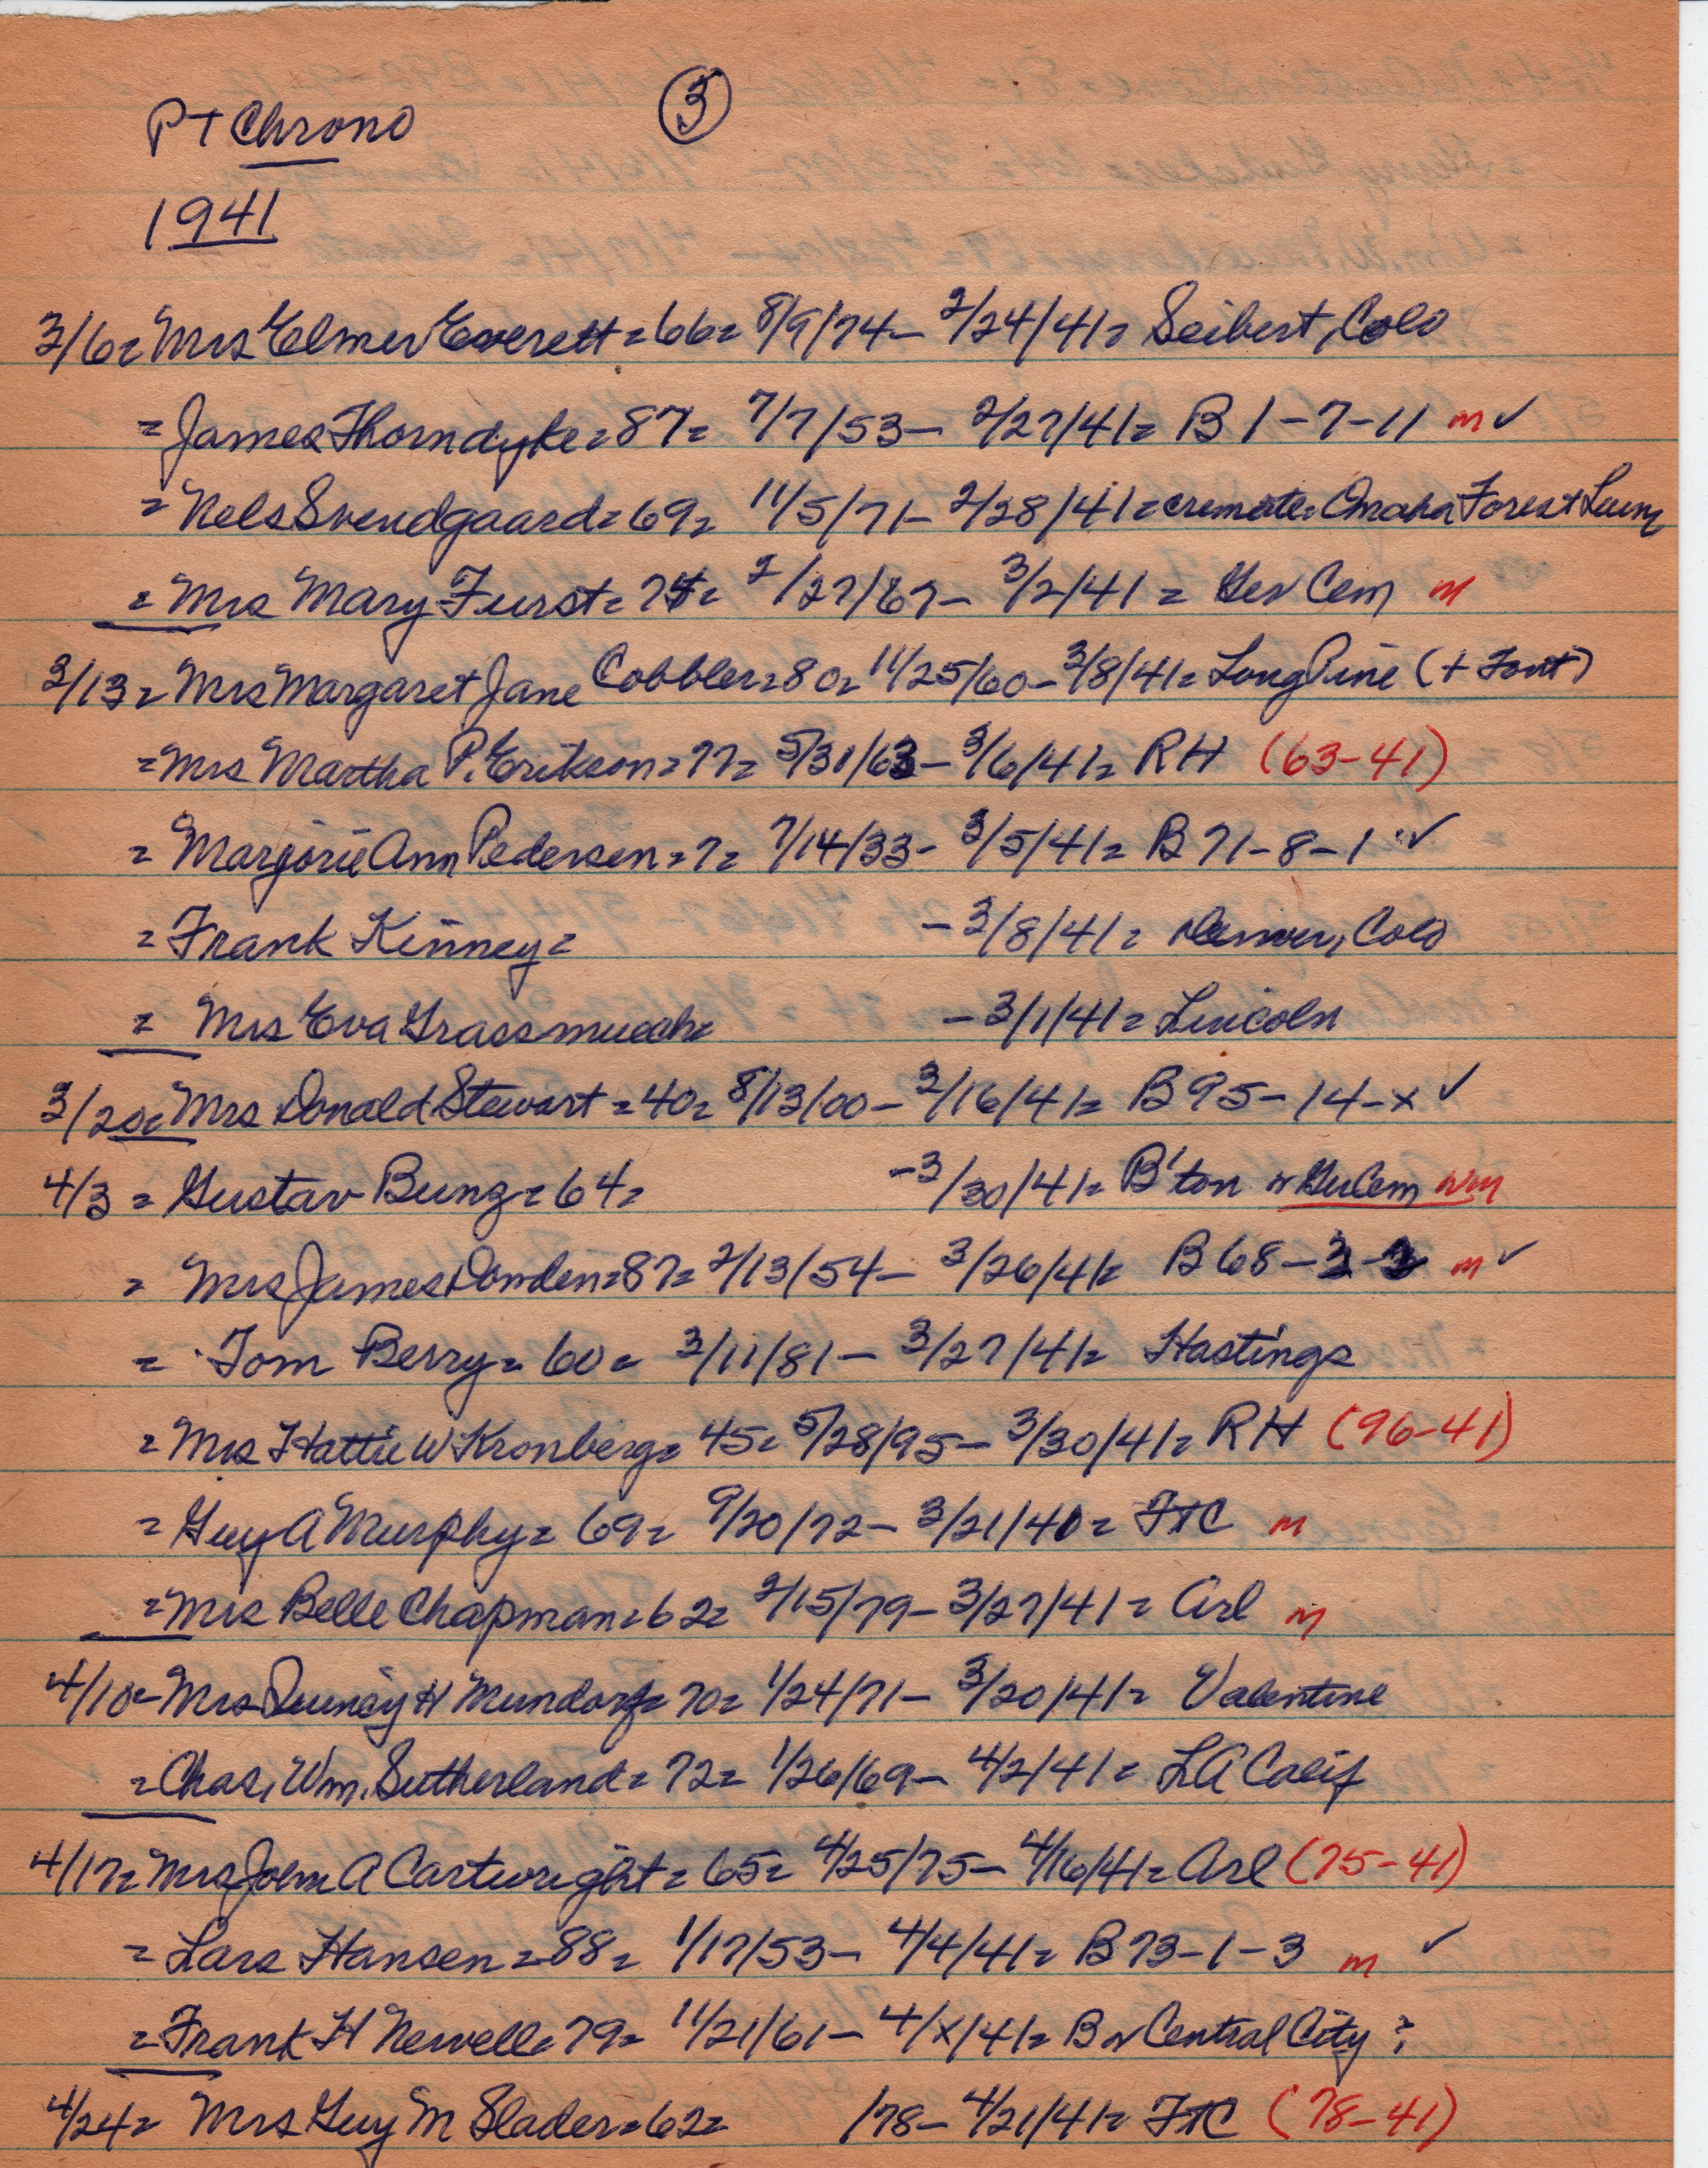 PT Chrono 3
1941
3/6= Mrs Elmer Everett=66= 8/9/74- 2/24/41= Seibert, Colo
=James Thorndyke=87= 7/7/53- 2/27/41= B 1-7-11 m ✓
=Nels Svendgaard=69= 11/5/71- 2/28/41=cremate=Omaha Forest Lawn
=Mrs Mary Furst= 2/27/67- 3/2/41= Ger Cem m
3/13=Mrs Margaret Jane Cobbler=80= 11/25/60-3/8/41= Long Pine (+ Font)
=Mrs Martha P. Erikson=77= 5/31/63-3/6/41= RH (63-41)
=Marjorie Ann Pedersen=7= 7/14/33- 3/5/41= B 71-8-1 ✓
=Frank Kinney= -3/8/41= Denver, Colo
= Mrs Eva Grassmueck= -3/1/41= Lincoln
3/20=Mrs Donald Stewart=40= 8/13/00- 3/16/41= B 95-14-x ✓
4/3= Gustav Bunz=64= -3/30/41= B'ton n GerCem nm
= Mrs James Dowden=87= 2/13/54- 3/26/41= B 68-3-2 m ✓
= Tom Berry= 60= 3/11/81- 3/27/41= Hastings
=Mrs Hattie W Kronberg= 45= 5/28/95- 3/30/41= RH (96-41)
=Guy A Murphy= 69= 9/20/72- 3/21/41= FTC m
=Mrs Belle Chapman=62= 2/15/79- 3/27/41= Arl m
4/10=Mrs Quincy H Mundorf=70= 1/24/71- 3/20/41= Valentine
=Chas. Wm. Sutherland=72= 1/26/69- 4/2/41= LA Calif
4/17=Mrs John A Cartwright=65= 4/25/75- 4/16/41= Arl (75-41)
=Lars Hansen=88= 1/17/53- 4/4/41= B 73-1-3 m ✓
=Frank H Newell=79= 11/21/61- 4/x/41= B n Central City ?
4/24= Mrs Guy M Slader=62= /78- 4/21/41= FTC (78-41)